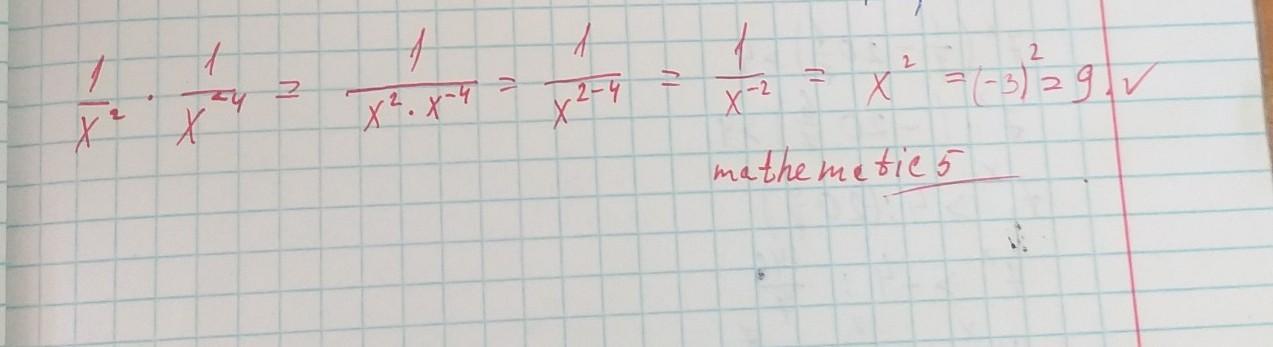 1/x² · 1/x⁻⁴ = 1/(x² · x⁻⁴) = 1/x²⁻⁴ = 1/x⁻² = x² = (-3)² = 9. ✓
mathematic5